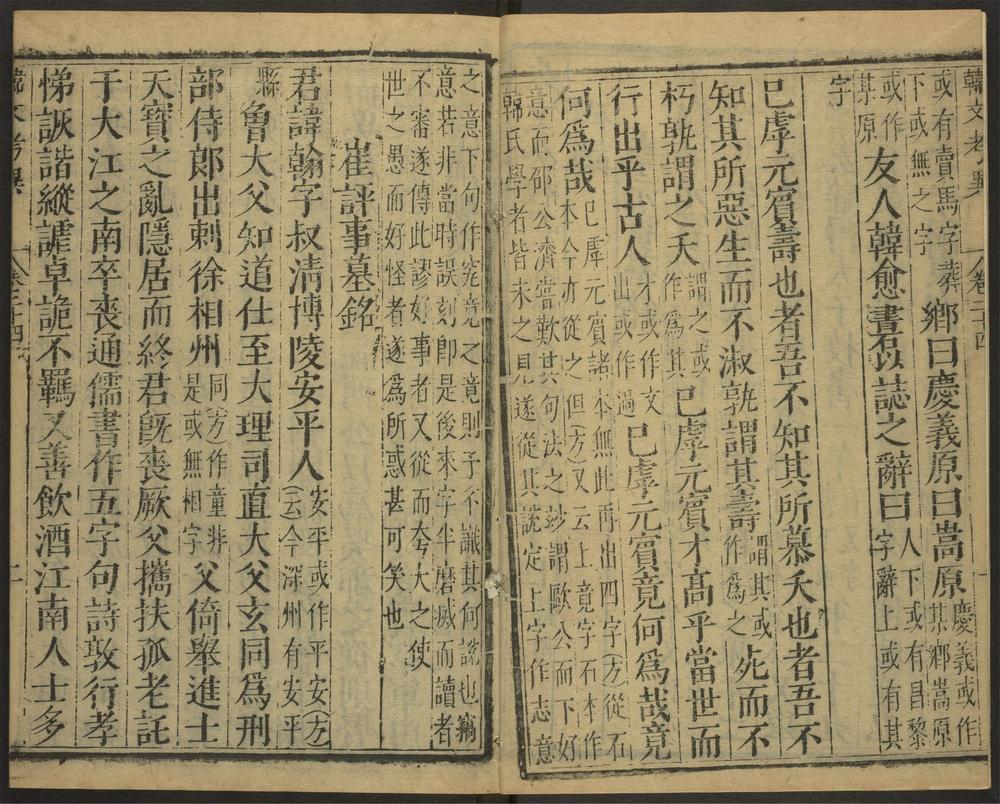 韓文考異 卷二十四
或有賣馬字葬
下或無之字
鄉曰慶義原曰嵩原
慶義或作
某鄉嵩原
或作
某原
友人韓愈書石以誌之辭曰
人下或有昌黎
字辭上或有其
字
已虖元賓壽也者吾不知其所慕夭也者吾不
知其所惡生而不淑孰謂其壽
謂其或
作為之
死而不
朽孰謂之夭
謂之或
作為其
已虖元賓才高乎當世而
行出乎古人
才或作文
出或作過
已虖元賓竟何為哉竟
何為哉
已虖元賓諸本無此再出四字方從石
本今亦從之但方又云上竟字石本作
意而邵公濟嘗歎其句法之妙謂歐公而下好
韓氏學者皆未之見遂從其說定上字作志意
之意下句作究竟之竟則子不識其何說也竊
意若非當時誤刻即是後來字半磨滅而讀者
不審遂傳此謬好事者又從而夸大之使
世之愚而好怪者遂為所惑甚可笑也
崔評事墓銘
君諱翰字叔清博陵安平人
安平或作平安方
云今深州有安平
縣
曾大父知道仕至大理司直大父玄同為刑
部侍郎出刺徐相州
同方作童非
是或無相字
父倚舉進士
天寶之亂隱居而終君既喪厥父攜扶孤老託
于大江之南卒喪通儒書作五字句詩敦行孝
悌詼諧縱謔卓詭不羈又善飲酒江南人士多
韓文考異 卷二十四 二